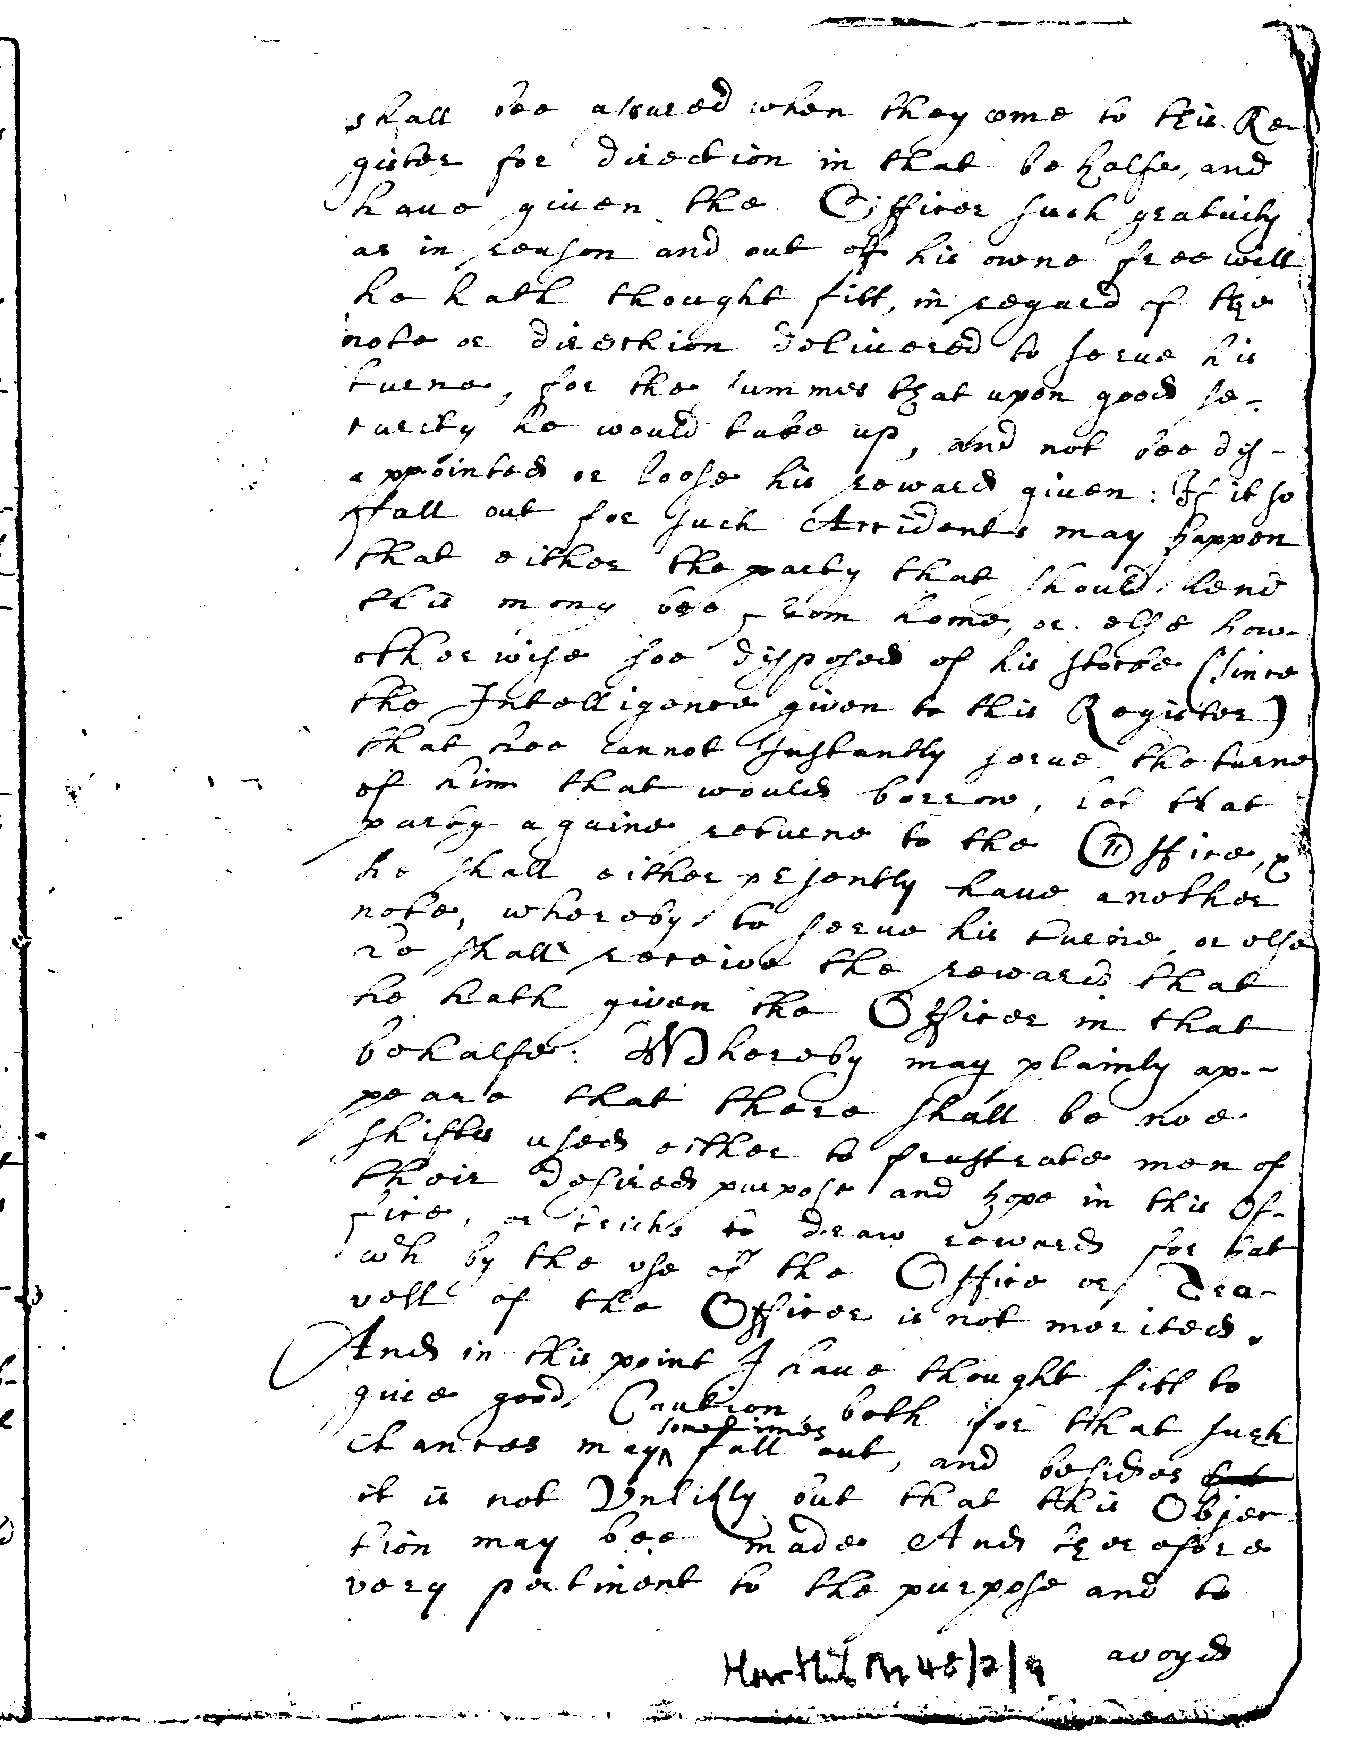 shall bee assured when they come to this Re-
gister for direction in that behalfe, and
haue giuen the Officer such gratuity
as in reason and out off his owne free will
he hath thought fitt, in regard of the
note or direction deliuered to serue his
turne, for the summes that upon good se-
curity he would take up, and not bee dis-
appointed or loose his reward giuen: If it so
ffall out for such Accidents may happen
that either the party that should lend
this mony bee from home, or else how-
otherwise soe disposed of his stocke (since
the Intelligence giuen to this Register)
that hee cannot Instantly serue the turne
of him that would borrow, let that
party againe returne to the Office, &
he shall either presently haue another
note, whereby to serue his turne, or else
he shall receive the reward that
he hath given the Officer in that
behalfe: Whereby may plainly ap-
peare that there shall be noe
shifts used either to frustrate men of
their desired purpose and hope in this Of-
fice, or tricks to draw reward for that
wh by the use of the Office or Tra-
vell of the Officer is not merited.
And in this point I haue thought fitt to
giue good Caution both for that such
chances may sometimes fall out, and besides
it is not Unlikly but that this Objec
tion may bee made And therefore
very pertinent to the purpose and to
avoyd
48/2/9